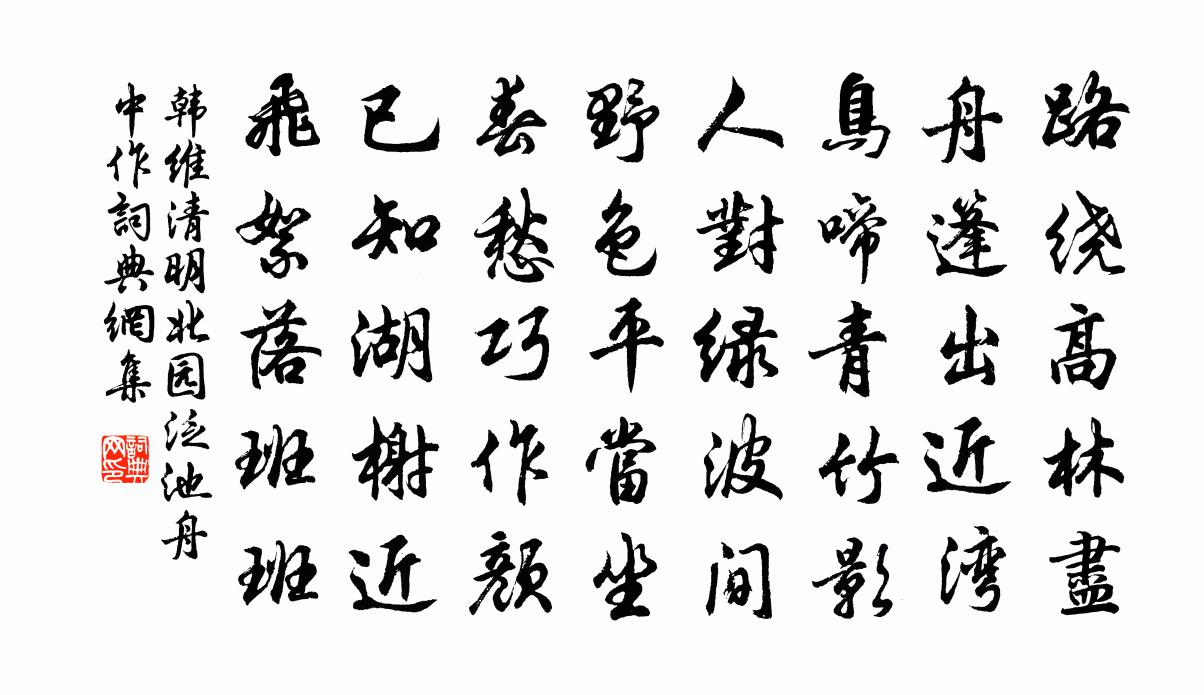 路绕高林盡
舟蓬出近湾
鳥啼青竹影
人對緑波间
野色平當坐
春愁巧作颜
已知湖榭近
飛絮落班班
韩维清明北园泛池舟
中作詞典網集
詞典网印